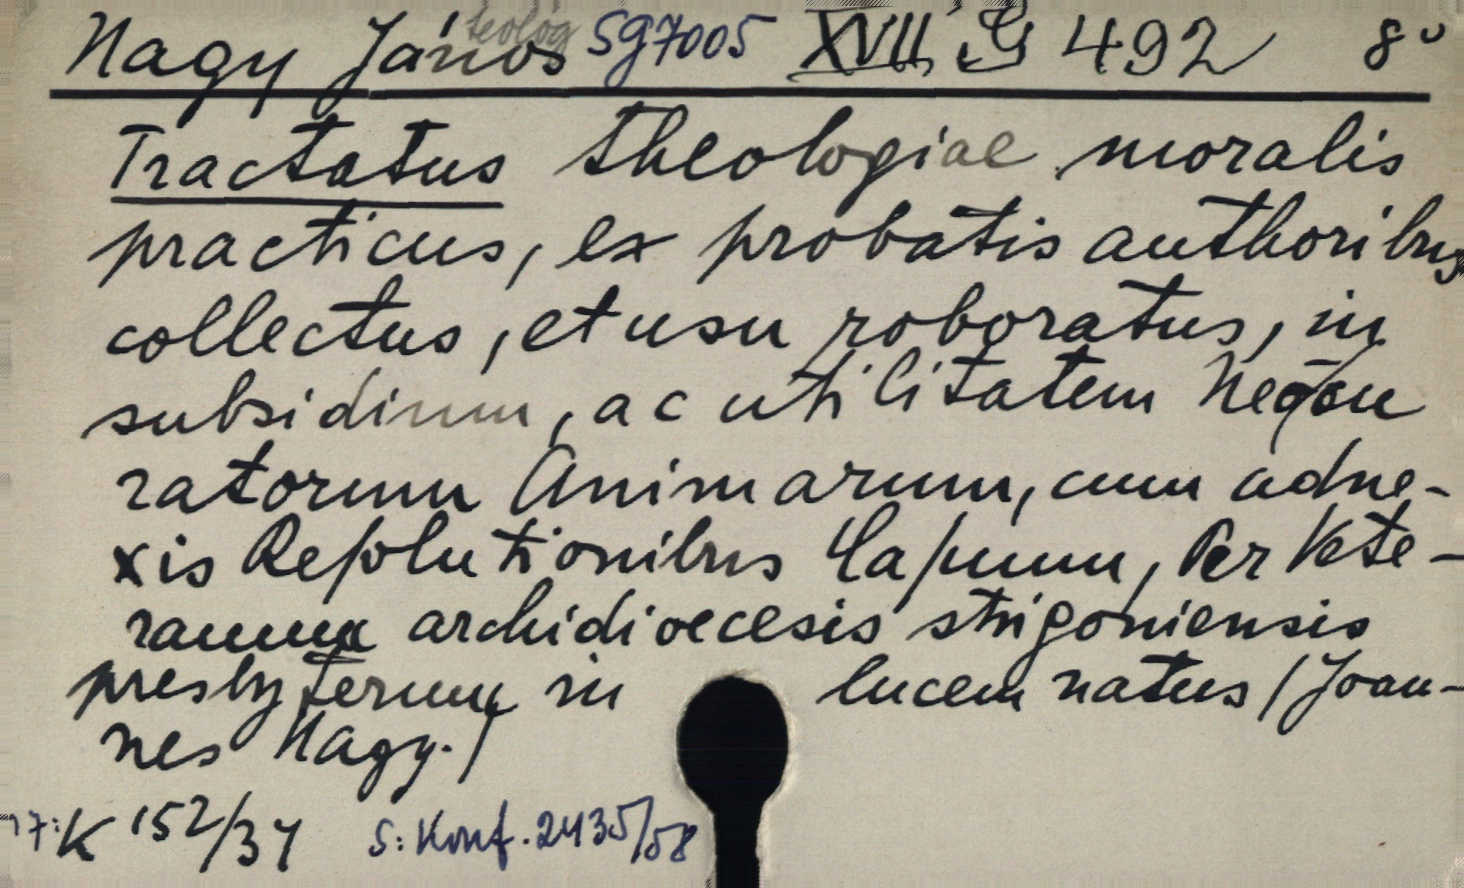 Nagy János teológ SG7005 XVII G 492 8°
Tractatus theologiae moralis
practicus, ex probatis authoribus
collectus, et usu roboratus, in
subsidium, ac utilitatem
ratorum Animarum, cum adne-
xis Resolutionibus Casuum, Per Vete-
ranum archidioecesis strigoniensis
presbyterum in lucem natus /Joan-
nes Nagy./
K 152/34 S: Konf. 2435/58